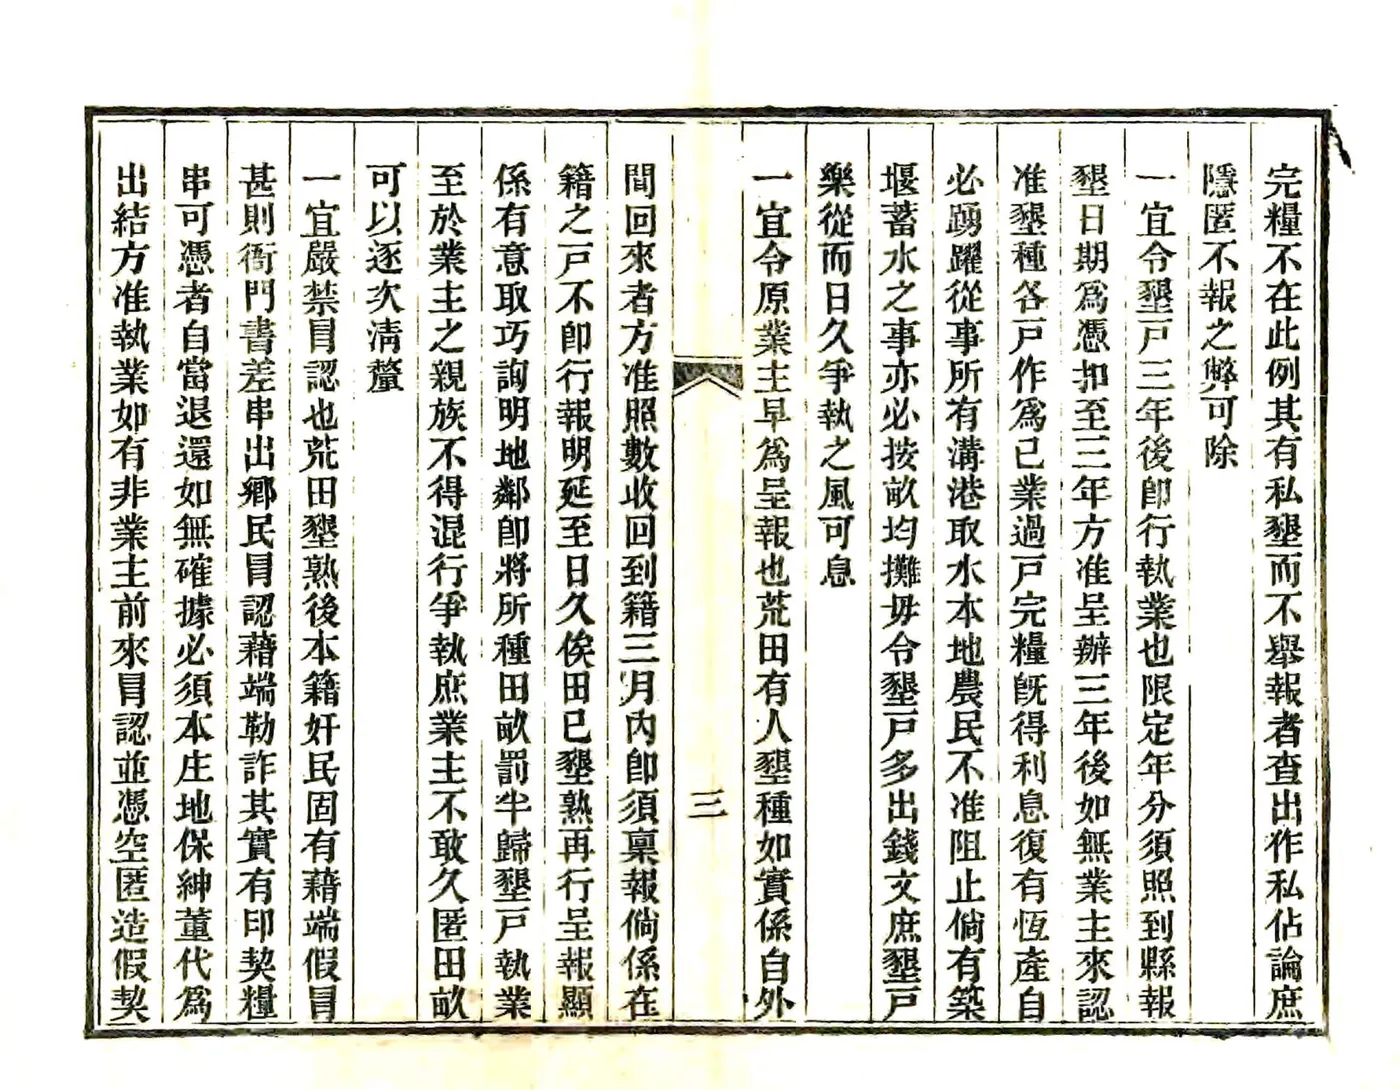 完糧不在此例其有私墾而不舉報者查出作私佔論庶
隱匿不報之弊可除
一宜令墾戸三年後卽行執業也限定年分須照到縣報
墾日期爲憑扣至三年方准呈辦三年後如無業主來認
准墾種各戸作爲己業過戸完糧旣得利息復有恆產自
必踴躍從事所有溝港取水本地農民不准阻止倘有築
堰蓄水之事亦必按畝均攤毋令墾戸多出錢文庶墾戸
樂從而日久爭執之風可息
一宜令原業主早爲呈報也荒田有人墾種如實係自外
三
間回來者方准照數收回到籍三月內卽須稟報倘係在
籍之戸不卽行報明延至日久俟田已墾熟再行呈報顯
係有意取巧詢明地鄰卽將所種田畝罰半歸墾戸執業
至於業主之親族不得混行爭執庶業主不敢久匿田畝
可以逐次淸釐
一宜嚴禁冐認也荒田墾熟後本籍奸民固有藉端假冐
甚則衙門書差串出鄉民冐認藉端勒詐其實有印契糧
串可憑者自當退還如無確據必須本庄地保紳董代爲
出結方准執業如有非業主前來冐認並憑空匿造假契